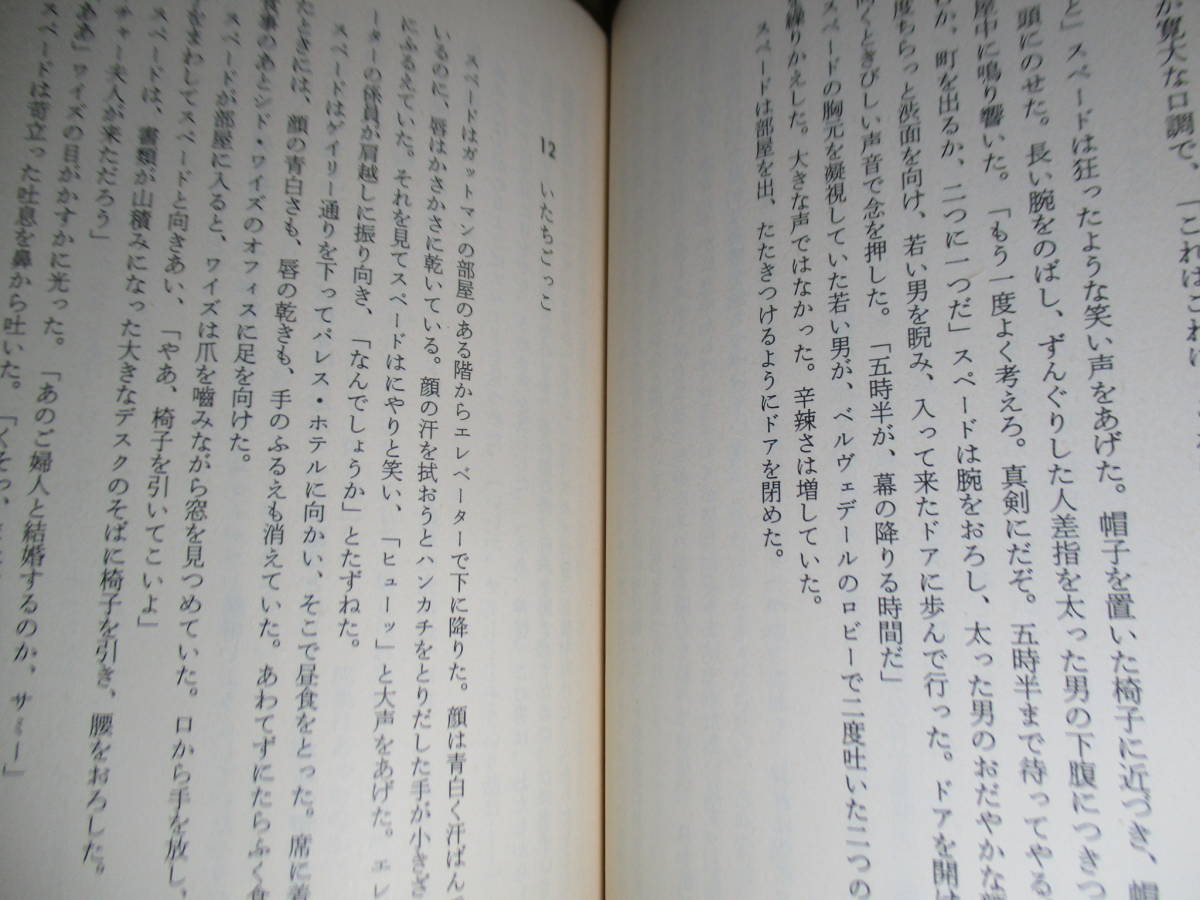 が寛大な口調で、「これはこれは
と」スペードは狂ったような笑い声をあげた。帽子を置いた椅子に近づき、帽
頭にのせた。長い腕をのばし、ずんぐりした人差指を太った男の下腹につきつ
屋中に鳴り響いた。「もう一度よく考えろ。真剣にだぞ。五時半まで待ってやる
か、町を出るか、二つに一つだ」スペードは腕をおろし、太った男のおだやかな
度ちらっと渋面を向け、若い男を睨み、入って来たドアに歩んで行った。ドアを開け
向くときびしい声音で念を押した。「五時半が、幕の降りる時間だ」
スペードの胸元を凝視していた若い男が、ベルヴェデールのロビーで二度吐いた二つの
を繰りかえした。大きな声ではなかった。辛辣さは増していた。
スペードは部屋を出、たたきつけるようにドアを閉めた。
12 いたちごっこ
スペードはガットマンの部屋のある階からエレベーターで下に降りた。顔は青白く汗ばんで
いるのに、唇はかさかさに乾いている。顔の汗を拭おうとハンカチをとりだした手が小きざ
にふるえていた。それを見てスペードはにやりと笑い、「ヒューッ」と大声をあげた。エレ
ーターの係員が肩越しに振り向き、「なんでしょうか」とたずねた。
スペードはゲイリー通りを下ってパレス・ホテルに向かい、そこで昼食をとった。席に着
たときには、顔の青白さも、唇の乾きも、手のふるえも消えていた。あわてずにたらふく食
食事のあとシド・ワイズのオフィスに足を向けた。
スペードが部屋に入ると、ワイズは爪を嚙みながら窓を見つめていた。口から手を放し、
をまわしてスペードと向きあい、「やあ、椅子を引いてこいよ」
スペードは、書類が山積みになった大きなデスクのそばに椅子を引き、腰をおろした。
チャー夫人が来ただろう」
「ああ」ワイズの目がかすかに光った。「あのご婦人と結婚するのか、サミー」
スペードは苛立った吐息を鼻から吐いた。「くそっ、